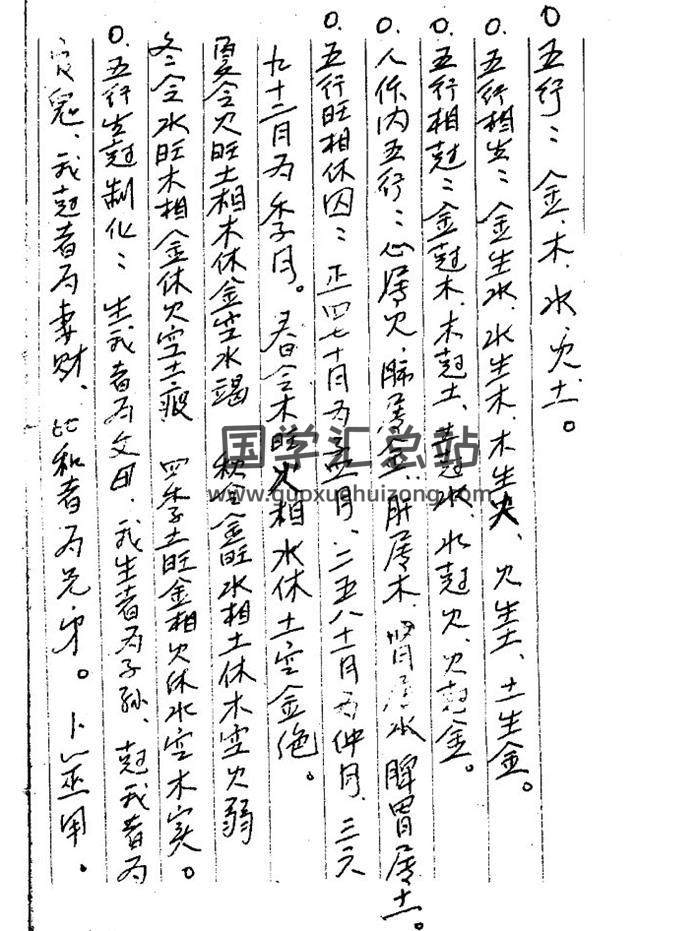 0 五行：金、木、水、火、土。
0. 五行相生：金生水、水生木、木生火、火生土、土生金。
0. 五行相尅：金尅木、木尅土、土尅水、水尅火、火尅金。
0. 人体内五行：心属火、肺属金、肝属木、肾属水 脾胃属土。
0. 五行旺相休囚：正四七十月为孟月、二五八十一月为仲月、三六
九十二月为季月。春令木旺火相水休土空金绝。
夏令火旺土相木休金空水竭 秋令金旺水相土休木空火弱
冬令水旺木相金休火空土 四季土旺金相火休水空木实。
0. 五行生尅制化：生我者为父母、我生者为子孙、尅我者为
官鬼、我尅者为妻财、比和者为兄弟。卜巫用。
国学汇总站
www.guoxuehuizong.com